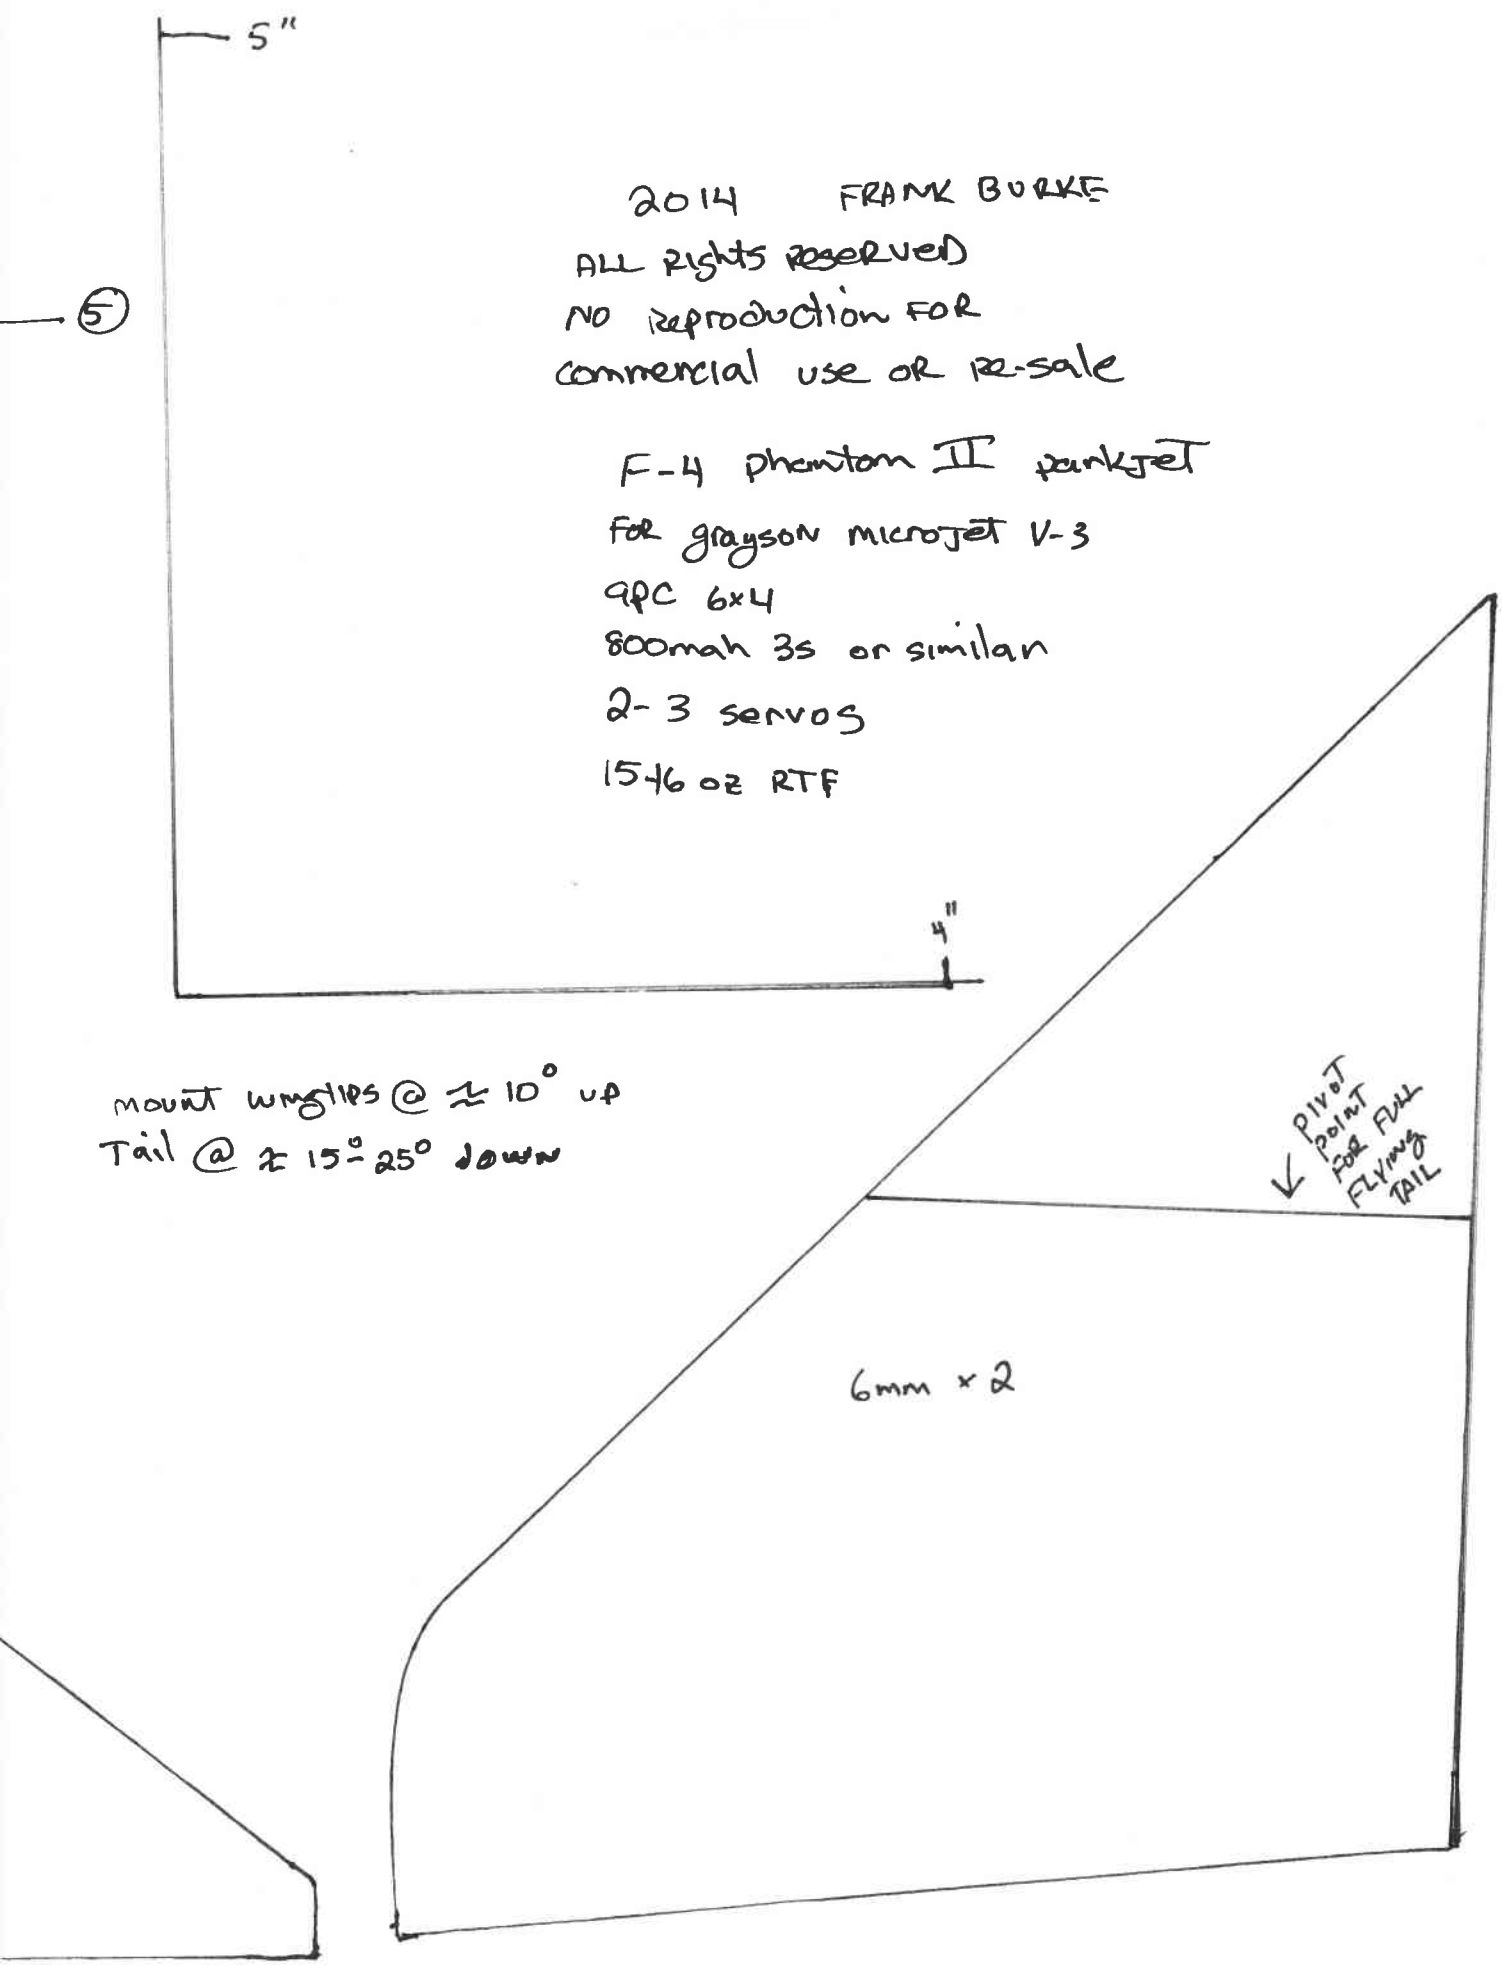 5"
2014 FRANK BURKE
ALL Rights Reserved
NO Reproduction FOR
commercial use OR Re-sale
5
F-4 Phantom II parkjet
FOR grayson microjet V-3
apc 6x4
800mah 3s or similar
2-3 servos
15-16 oz RTF
4"
mount wingtips @ ≈ 10° up
Tail @ ≈ 15°-25° down
PIVOT
POINT
FOR FULL
FLYING
TAIL
6mm x 2